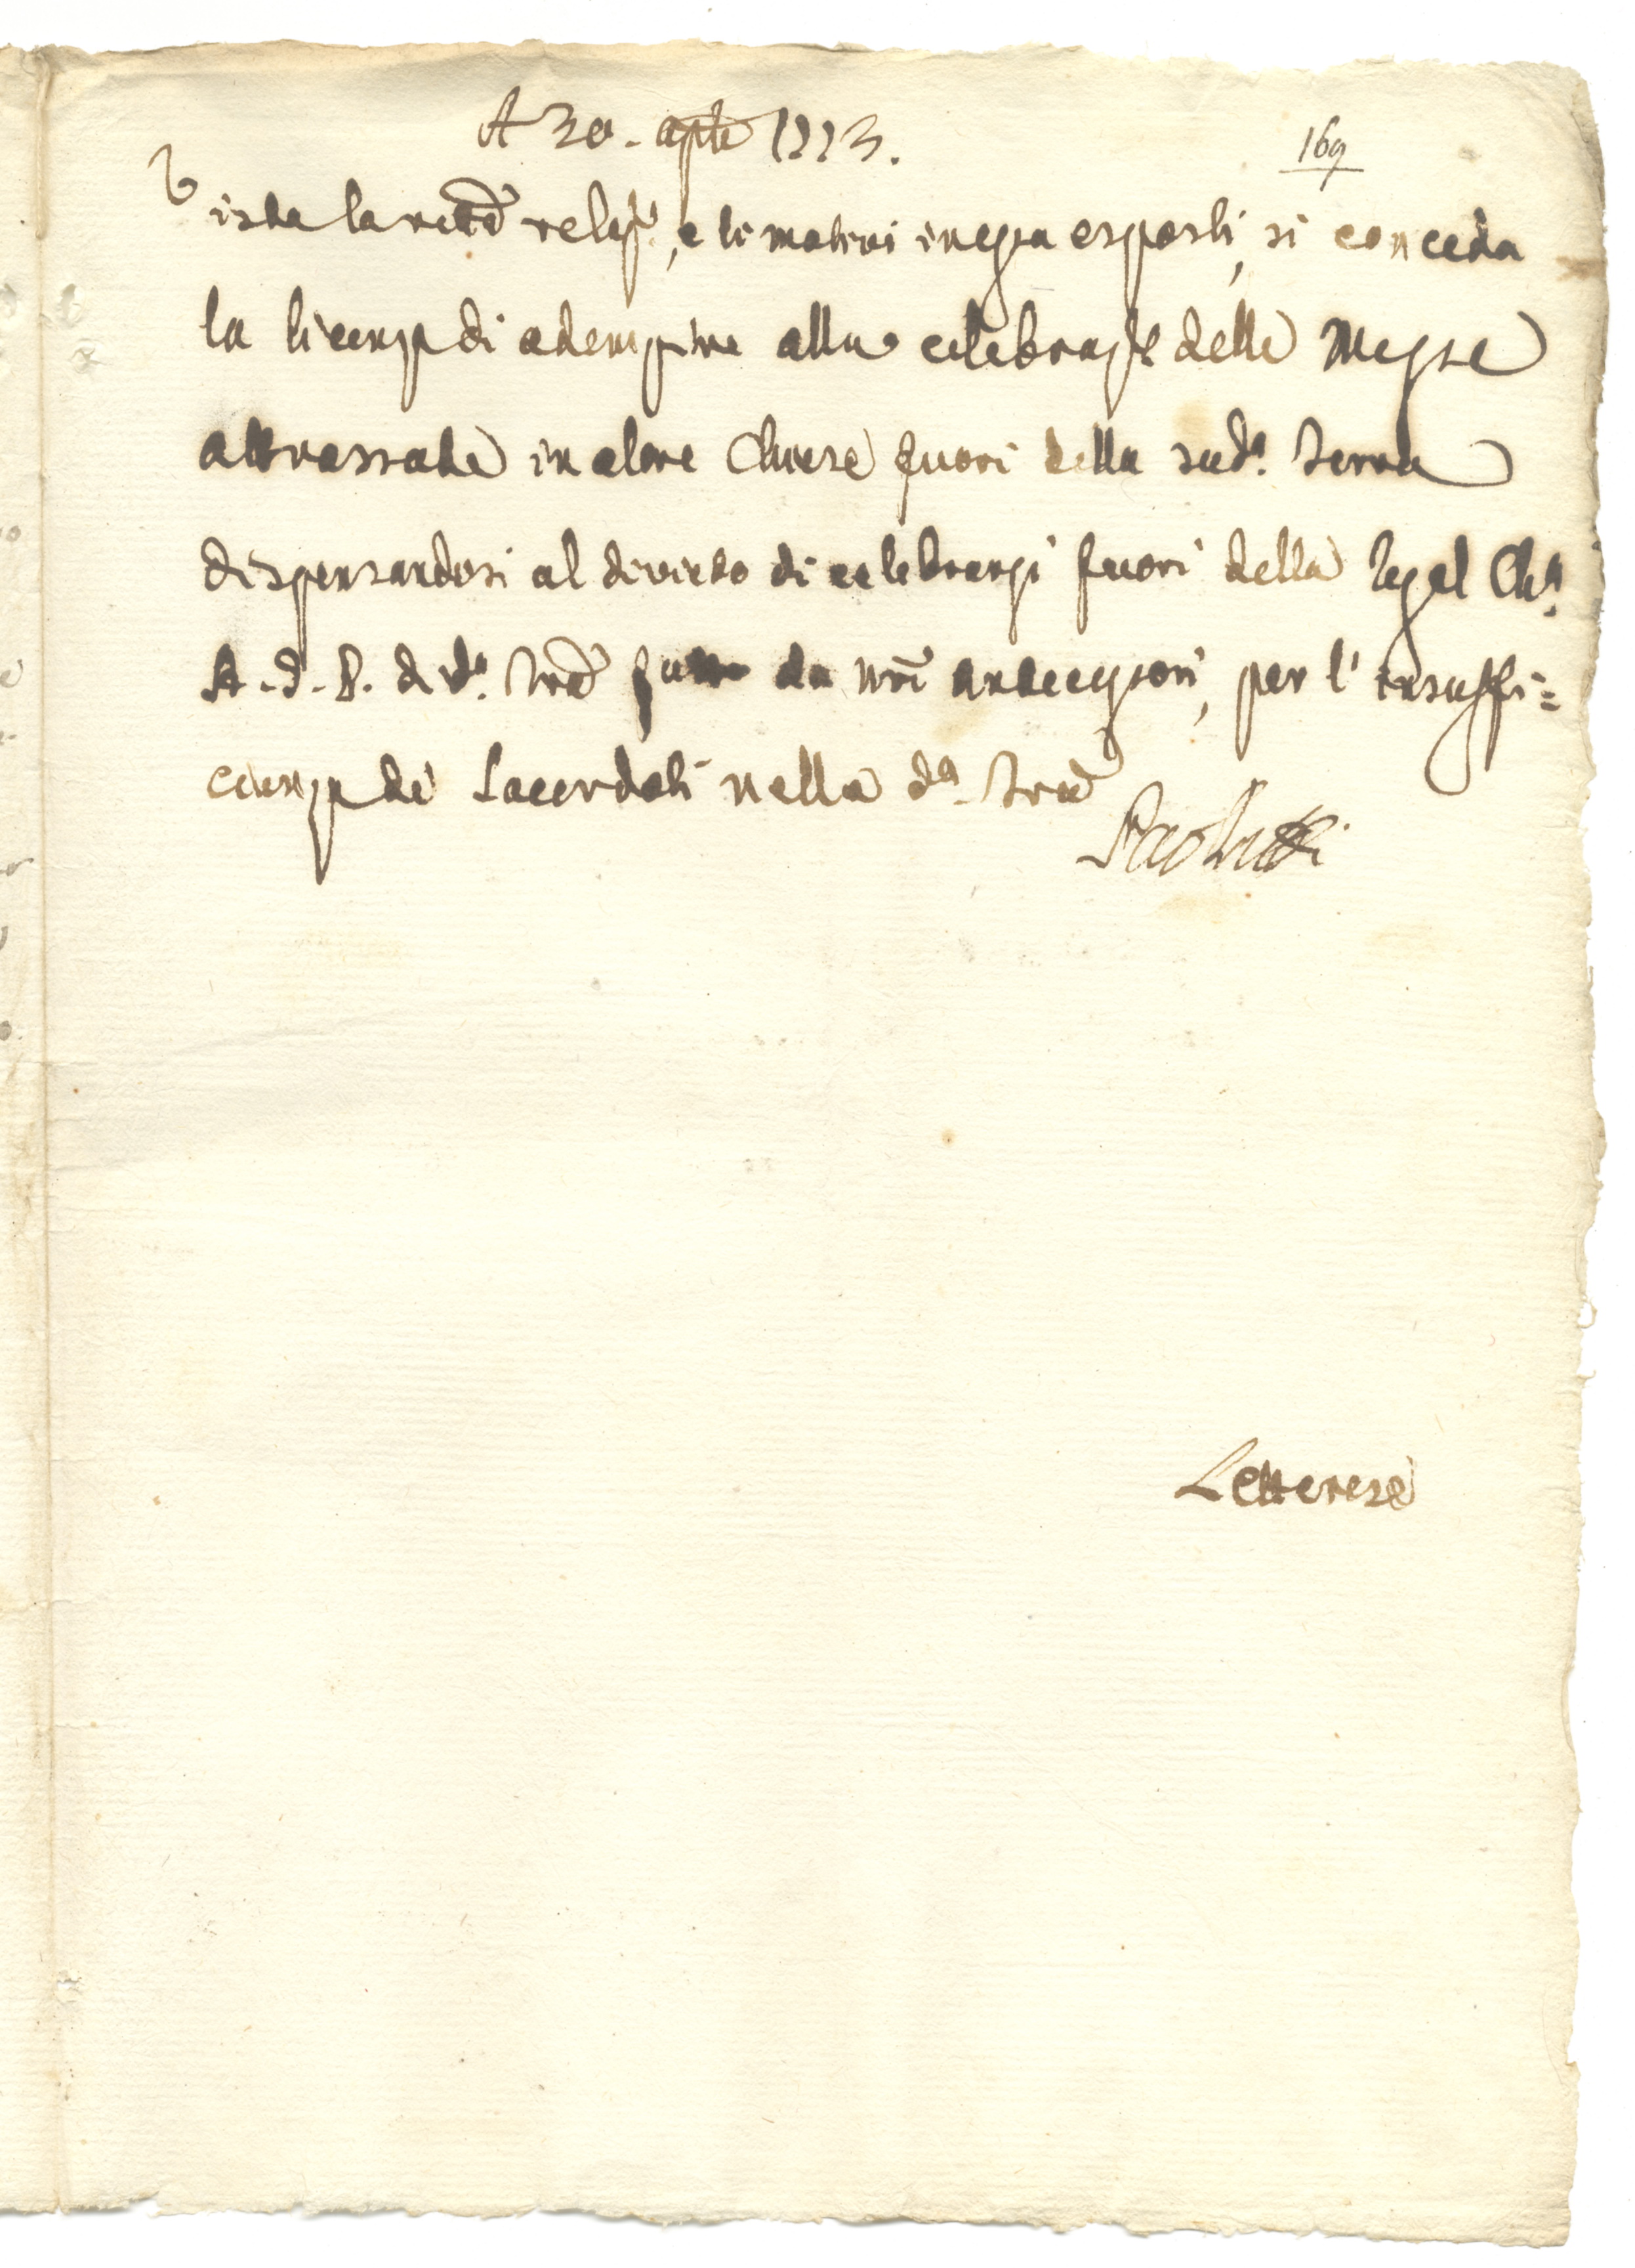 A 30. aple 1773.
169
Vista la retta relaz.e, e li motivi in essa esposti, si conceda
la licenza di adempire alla celebraz.e delle Messe
attrassate in altre Chiese fuori della sud.a Terra
dispensandosi al divieto di celebrarsi fuori della Regal Ch.a
A. G. P. di d.a Trã fatto da nri antecessori, per l' insuffi=
cienza de Sacerdoti nella d.a Trã
Paolutti
Letterese